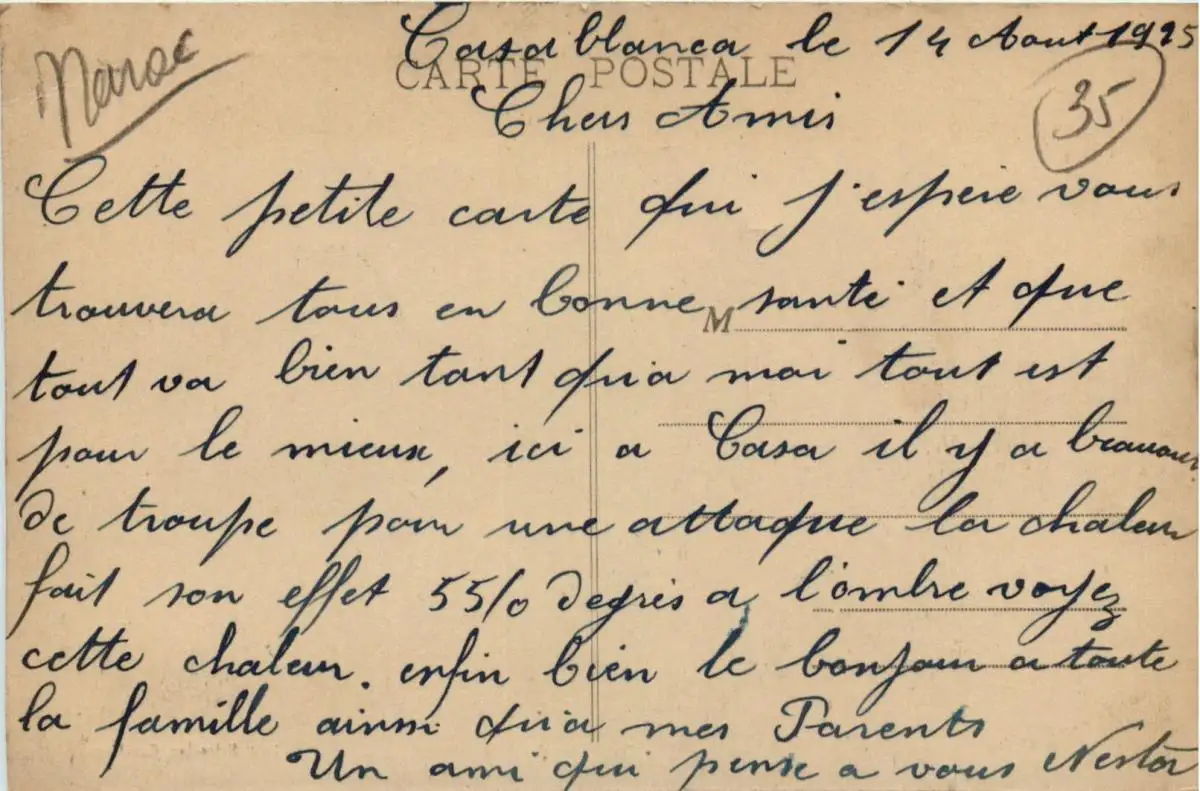 Maroc
Casablanca le 14 Aout 1925
CARTE POSTALE
35
Chers Amis
Cette petite carte qui j'espere vous
trouvera tous en bonne santé et que
M
tout va bien tant qu'a moi tout est
pour le mieux, ici a Casa il y a
de troupe pour une attaque la chaleur
fait son effet 55/0 degrés a l'ombre voyez
cette chaleur. enfin bien le bonjour a toute
la famille ainsi qu'a mes Parents
Un ami qui pense a vous Nestor